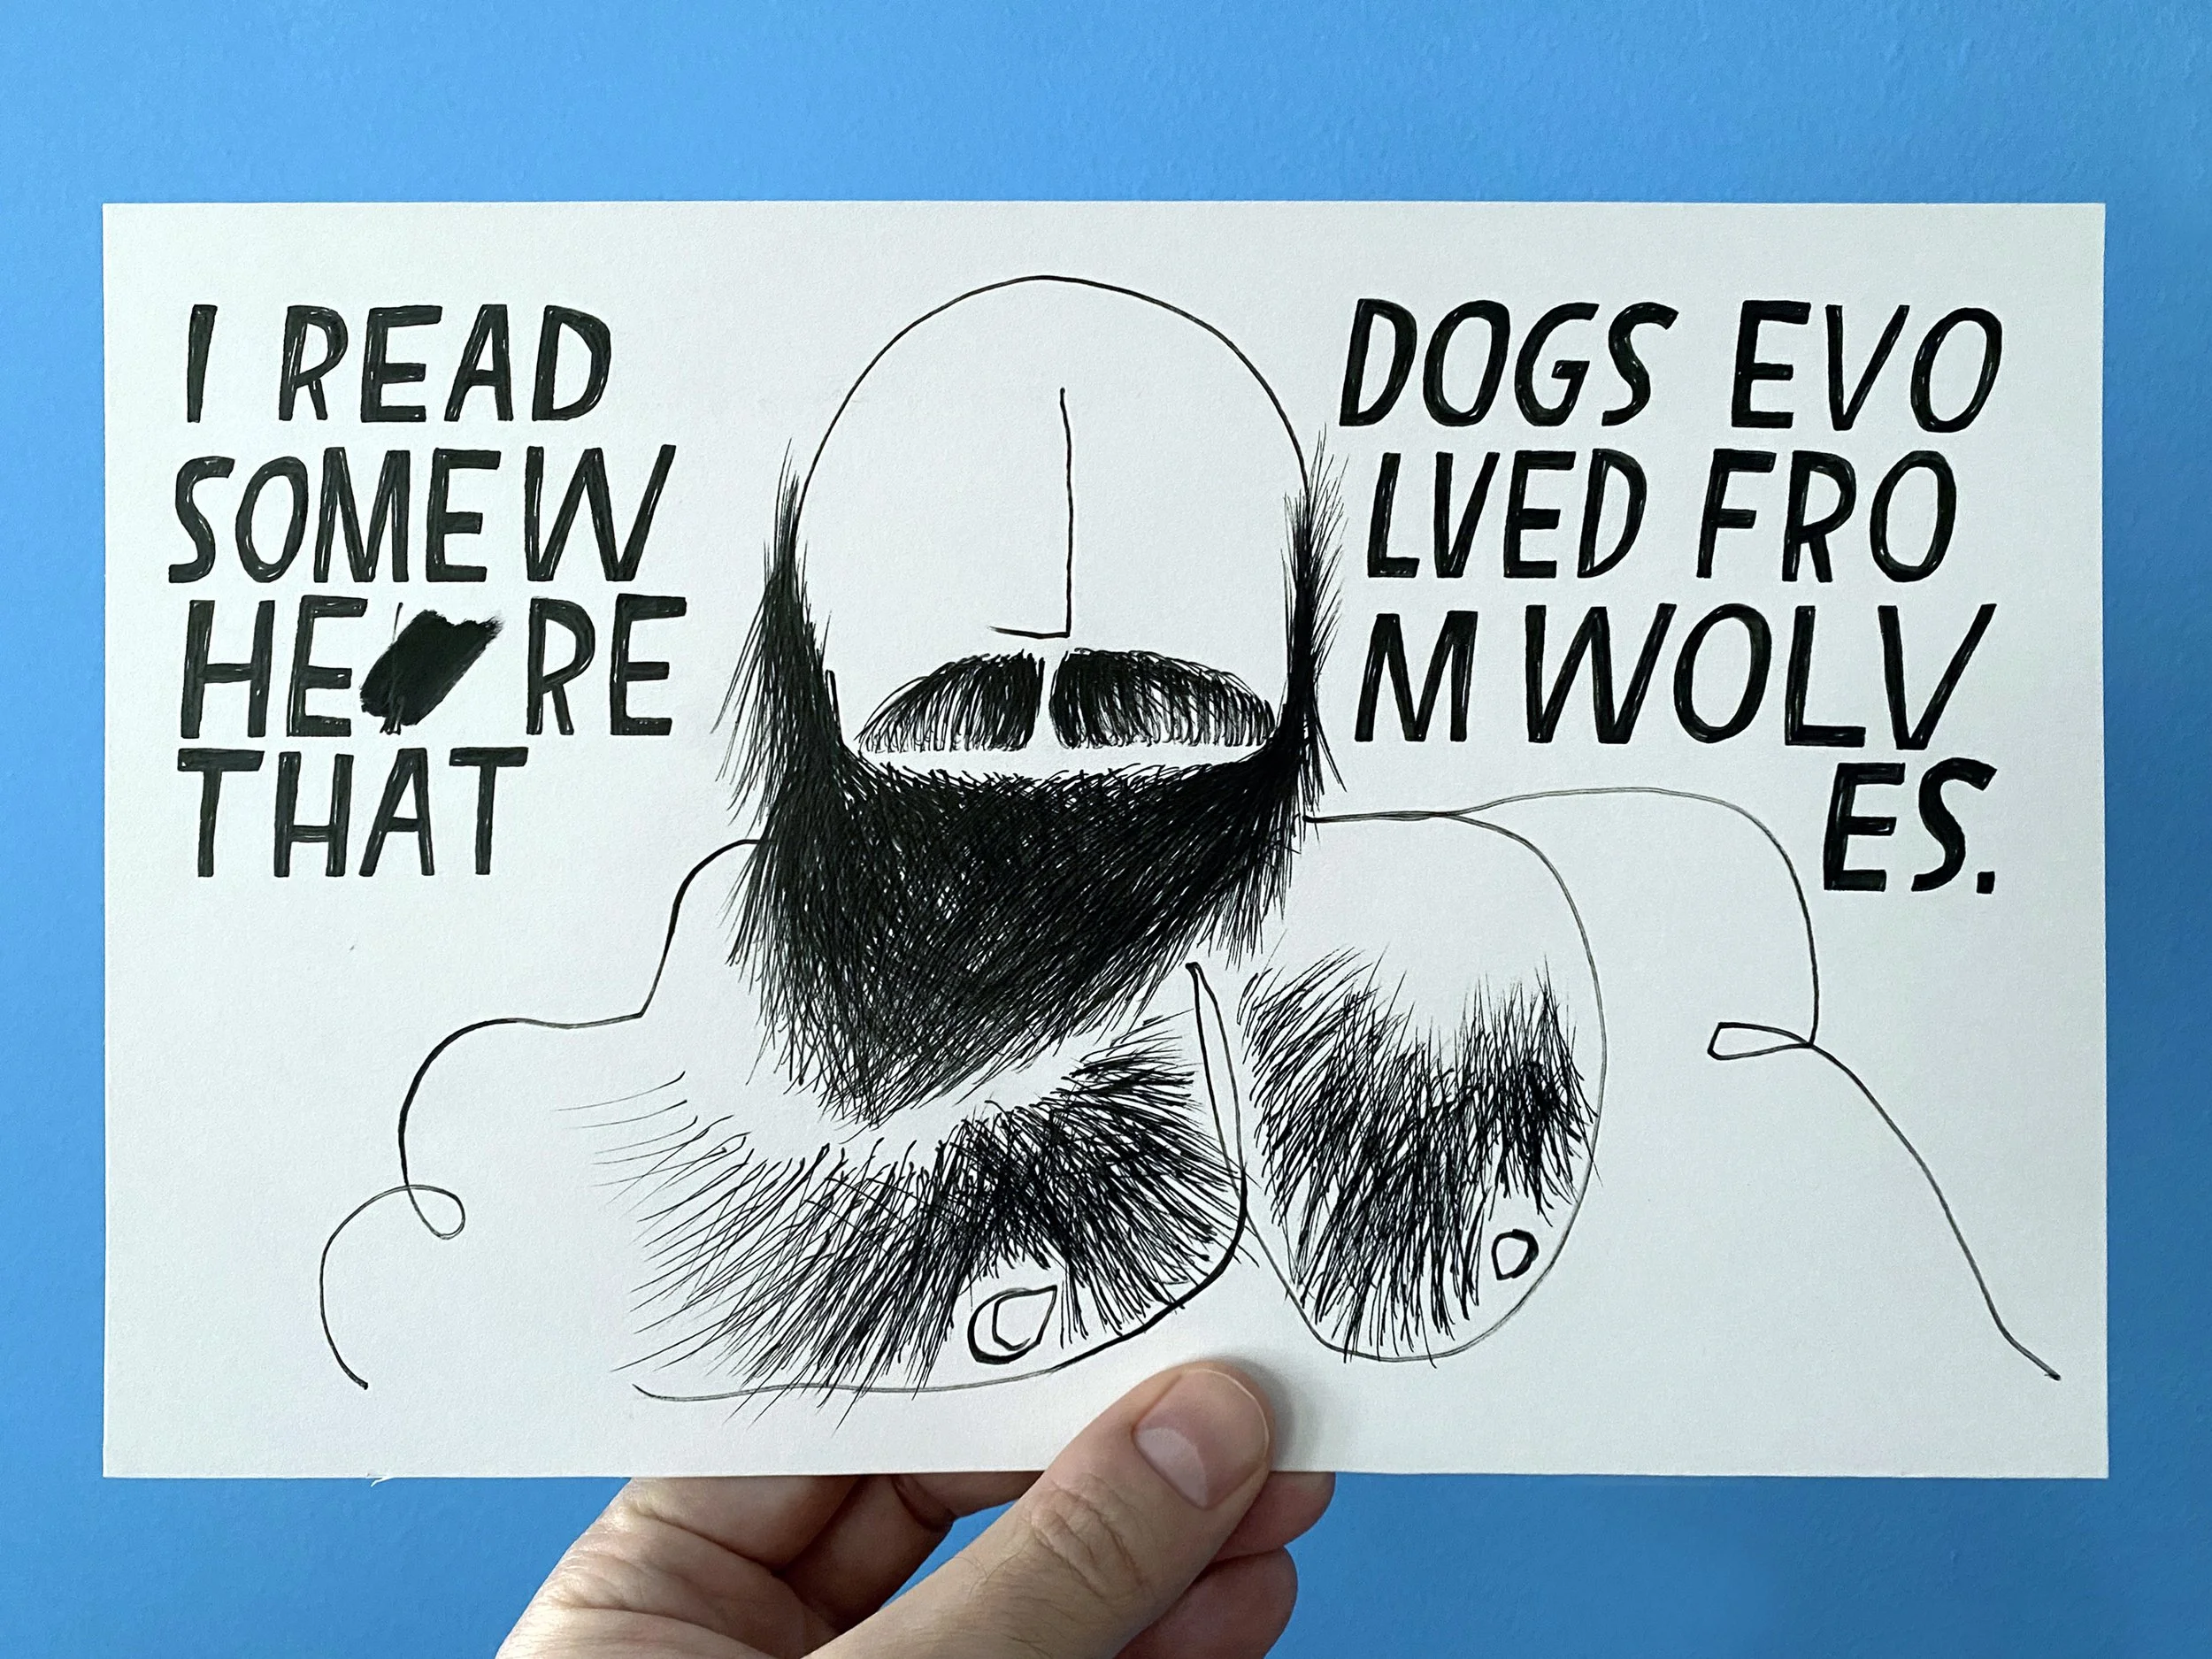 I READ
SOMEW
HE RE
THAT
DOGS EVO
LVED FRO
M WOLV
ES.